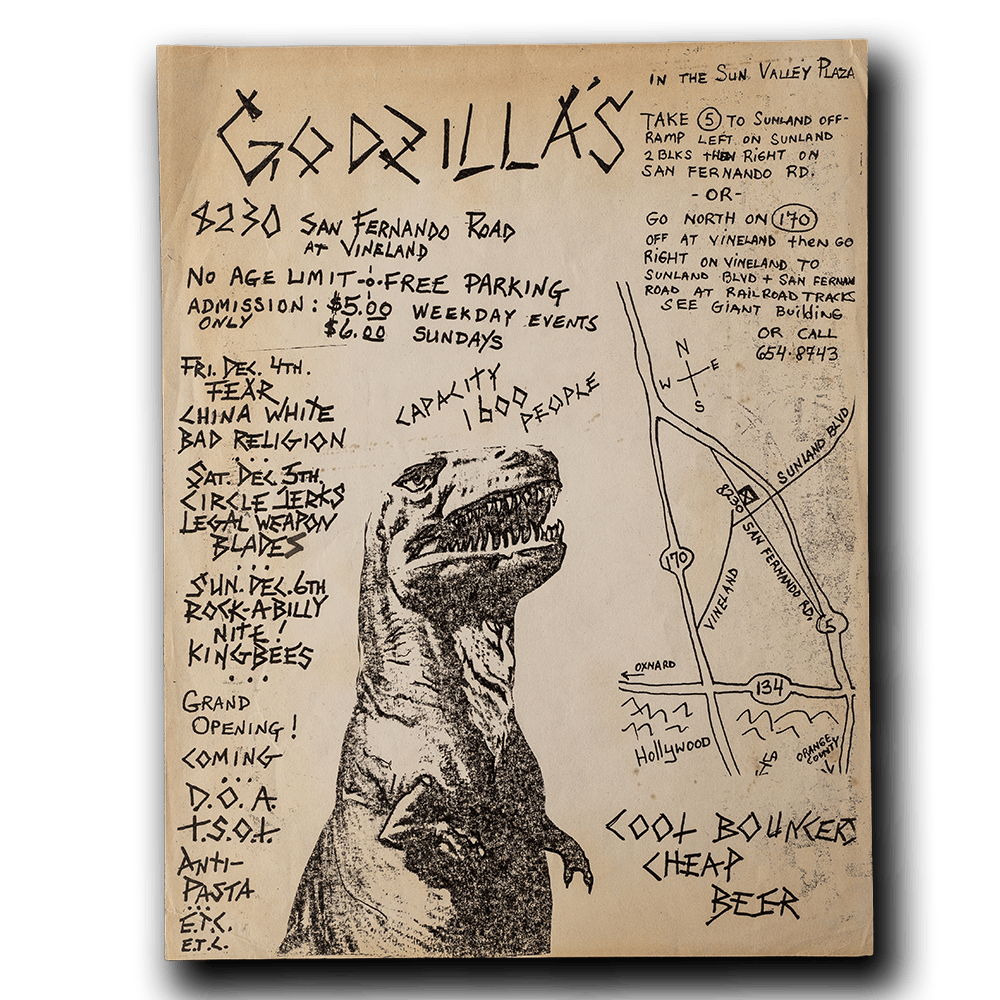 GODZILLA'S
8230 SAN FERNANDO ROAD
AT VINELAND
NO AGE LIMIT FREE PARKING
ADMISSION: $5.00 WEEKDAY EVENTS
ONLY $6.00 SUNDAYS
IN THE SUN VALLEY PLAZA
TAKE 5 TO SUNLAND OFF-
RAMP LEFT ON SUNLAND
2 BLKS THEN RIGHT ON
SAN FERNANDO RD.
-OR-
GO NORTH ON 170
OFF AT VINELAND THEN GO
RIGHT ON VINELAND TO
SUNLAND BLVD + SAN FERNAN
ROAD AT RAILROAD TRACKS
SEE GIANT BUILDING
OR CALL
654-8743
FRI. DEC. 4TH.
FEAR
CHINA WHITE
BAD RELIGION
SAT. DEC. 5TH.
CIRCLE JERKS
LEGAL WEAPON
BLADES
SUN. DEC. 6TH
ROCK-A-BILLY
NITE!
KINGBEES
GRAND
OPENING!
COMING
D.O.A.
T.S.O.L.
ANTI-
PASTA
E.T.C.
E.T.C.
CAPACITY
1600
PEOPLE
N
W E
S
SUNLAND BLVD
8230
SAN FERNANDO RD.
170
VINELAND
5
OXNARD
134
HOLLYWOOD
LA
ORANGE
COUNTY
COOL BOUNCERS
CHEAP
BEER